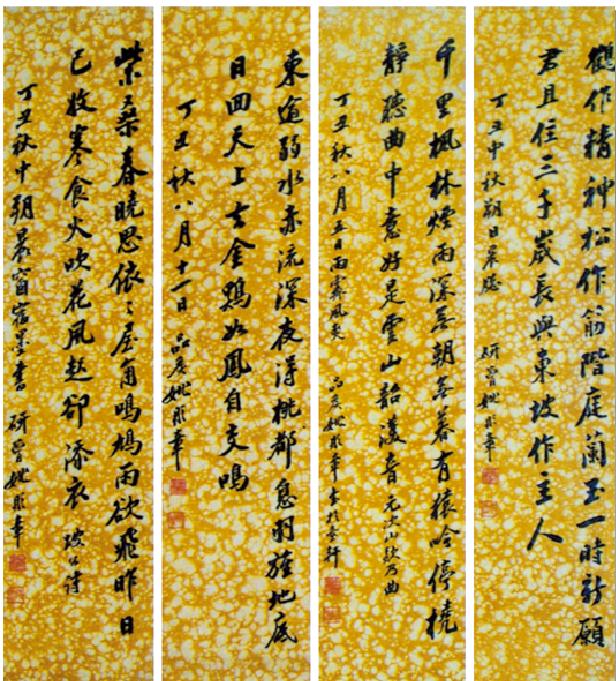 鶴作精神松作筋階庭蘭玉一時新願
君且住三千歲長與東坡作主人
丁丑中秋朔日晨 研曾姚彤章
千里楓林煙雨深無朝無暮有猿吟停橈
靜聽曲中意好是雲山韶濩音 元次山欸乃曲
丁丑秋八月五日雨霽風爽 品侯姚彤章書於軒
東逾弱水赤流深夜浮桃都息羽旌地底
日回天上去金鷄如鳳自支鳴
丁丑秋八月十一日 品侯姚彤章
柴桑春晚思依〻屋角鳴鳩雨欲飛昨日
已收寒食火吹花風起却添衣 坡公詩
丁丑秋中朔晨窗宿墨書 研曾姚彤章